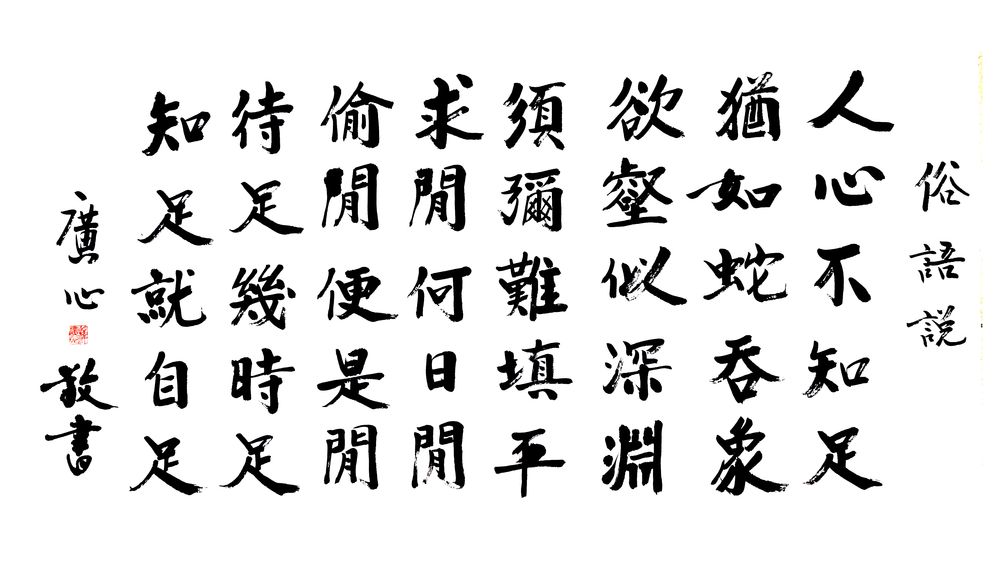 俗語説
人心不知足
猶如蛇吞象
欲壑似深淵
須彌難填平
求閒何日閒
偷閒便是閒
待足幾時足
知足就自足
廣心
敬書